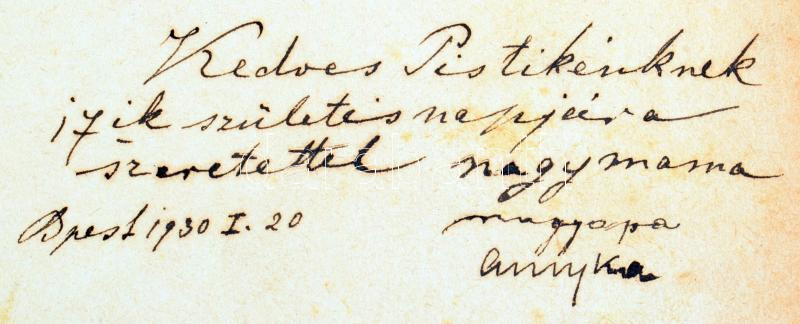 Kedves Pistikénknek
17ik születésnapjára
szeretettel nagymama
Bpest 1930 I. 20 nagyapa
annyka